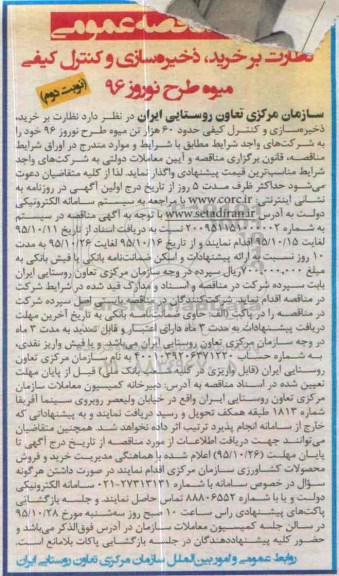 مناقصه عمومی
نظارت بر خرید، ذخیره‌سازی و کنترل کیفی
میوه طرح نوروز ۹۶
(نوبت دوم)
سازمان مرکزی تعاون روستایی ایران در نظر دارد نظارت بر خرید،
ذخیره‌سازی و کنترل کیفی حدود ۶۰ هزار تن میوه طرح نوروز ۹۶ خود را
به شرکت‌های واجد شرایط مطابق با شرایط و موارد مندرج در اوراق شرایط
مناقصه، قانون برگزاری مناقصه و آیین معاملات دولتی به شرکت‌های واجد
شرایط مناسب‌ترین قیمت پیشنهادی واگذار نماید. لذا از کلیه متقاضیان دعوت
می‌شود حداکثر ظرف مدت ۵ روز از تاریخ درج اولین آگهی در روزنامه به
نشانی اینترنتی www.corc.ir با مراجعه به سیستم سامانه الکترونیکی
دولت به آدرس www.setadiran.ir با توجه به آگهی مناقصه در سیستم
به شماره نسبت به دریافت اسناد از تاریخ ۹۵/۱۰/۱۱
لغایت ۹۵/۱۰/۱۵ اقدام نمایند و از تاریخ ۹۵/۱۰/۱۶ لغایت ۹۵/۱۰/۲۶ به مدت
۱۰ روز نسبت به ارائه پیشنهادات و اسکن ضمانت‌نامه بانکی یا فیش بانکی به
مبلغ ۷۰۰,۰۰۰,۰۰۰ ریال سپرده در وجه سازمان مرکزی تعاون روستایی ایران
بابت سپرده شرکت در مناقصه و اسناد و مدارک قید شده در شرایط شرکت
در مناقصه اقدام نمایند. شرکت‌کنندگان در مناقصه بایستی اصل سپرده شرکت
در مناقصه را در پاکت (الف) حاوی ضمانت‌نامه بانکی به تاریخ آخرین مهلت
دریافت پیشنهادات به مدت ۳ ماه دارای اعتبار و قابل تمدید به مدت ۳ ماه
در وجه سازمان مرکزی تعاون روستایی ایران می‌باشد و یا فیش واریز نقدی،
به شماره حساب ۴۰۰۱۰۳۹۲۰۶۳۷۱۲۲۰ به نام سازمان مرکزی تعاون
روستایی ایران (قابل واریز در کلیه بانک ) قبل از پایان مهلت
تعیین شده در اسناد مناقصه به آدرس: دبیرخانه کمیسیون معاملات سازمان
مرکزی تعاون روستایی ایران واقع در خیابان ولیعصر روبروی سینما آفریقا
شماره ۱۸۱۳ طبقه همکف تحویل و رسید دریافت نمایند و به پیشنهاداتی که
خارج از سامانه انجام پذیرد ترتیب اثر داده نخواهد شد. همچنین متقاضیان
می‌توانند جهت دریافت اطلاعات از مورد مناقصه از تاریخ درج آگهی تا
پایان مهلت (۹۵/۱۰/۲۶) اعلام شده با هماهنگی مدیریت خرید و فروش
محصولات کشاورزی سازمان مرکزی اقدام نمایند در صورت داشتن هرگونه
سؤال در خصوص سامانه با شماره ۲۷۳۱۳۱۳۱-۰۲۱ سامانه الکترونیکی
دولت و یا با شماره ۸۸۸۰۶۵۵۲ تماس حاصل نمایند. و جلسه بازگشایی
پاکت‌های پیشنهادی راس ساعت ۱۰ صبح روز سه‌شنبه مورخ ۹۵/۱۰/۲۸
در سالن جلسه کمیسیون معاملات سازمان در آدرس فوق‌الذکر می‌باشد و
حضور کلیه پیشنهاددهندگان در جلسه بازگشایی پاکات بلامانع است.
روابط عمومی و امور بین‌الملل سازمان مرکزی تعاون روستایی ایران